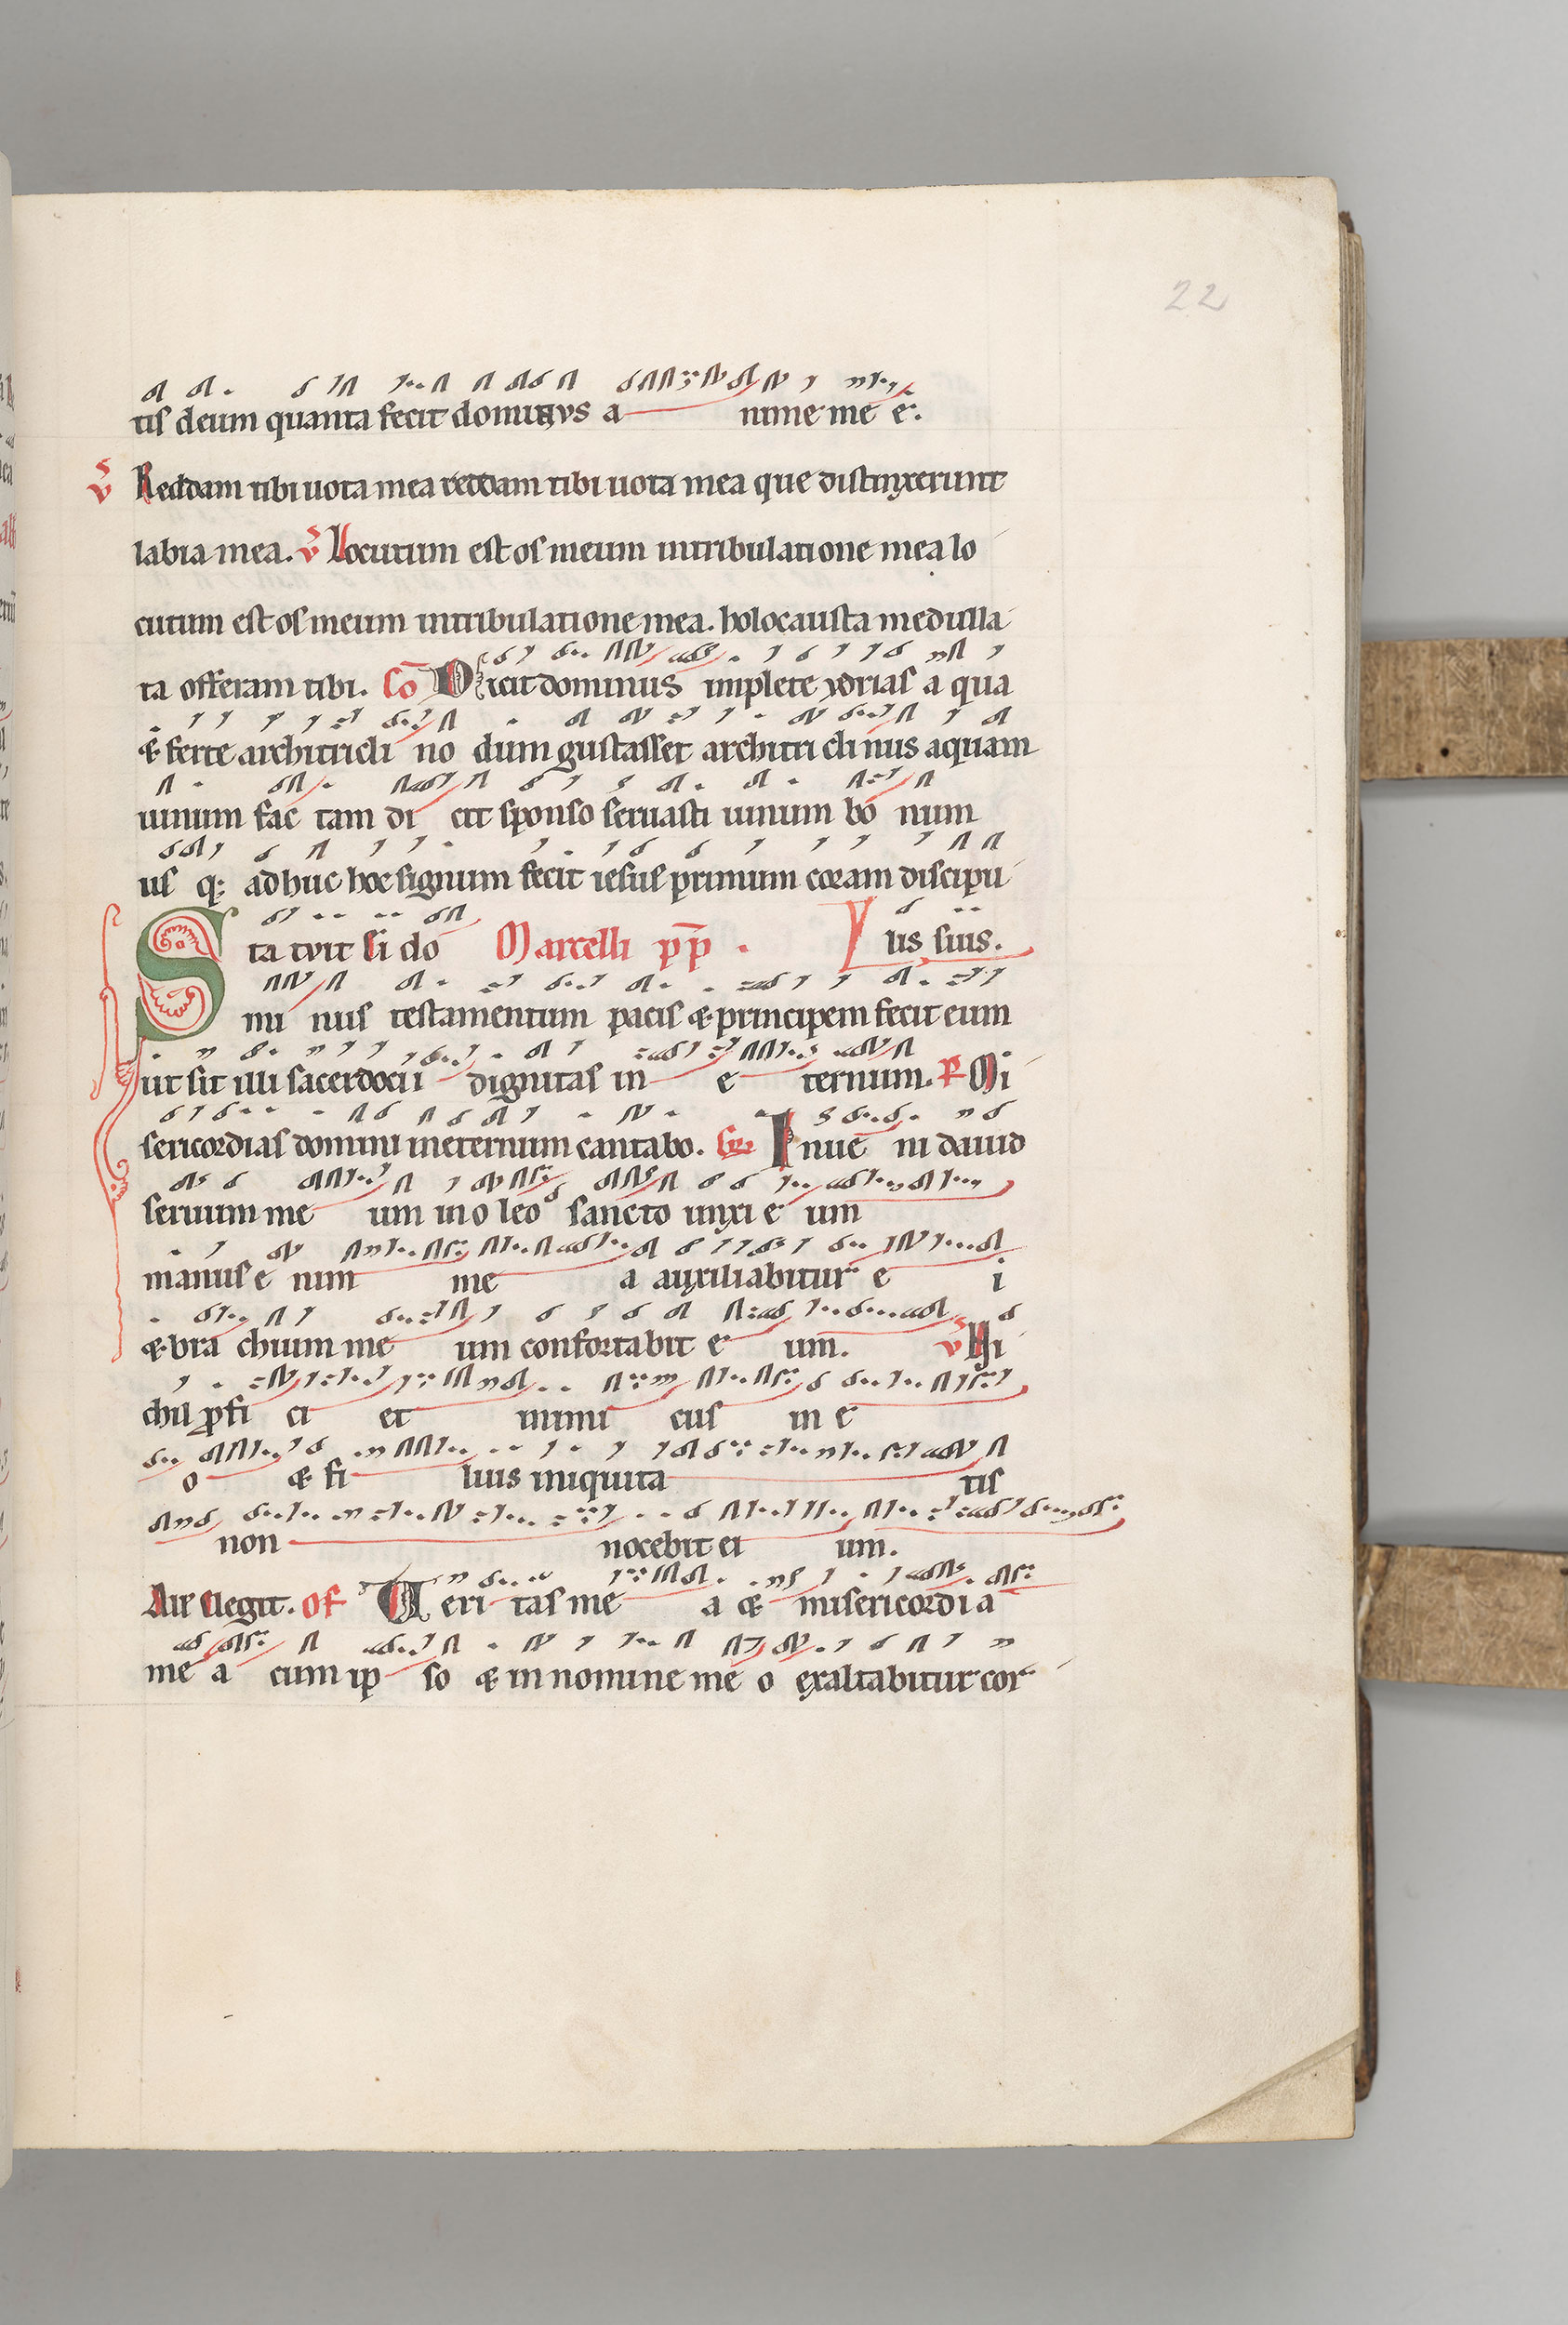 22
tis deum quanta fecit dominus a nime me e.
v Reddam tibi uota mea reddam tibi uota mea que distinxerunt
labia mea. v Locutum est os meum in tribulatione mea lo
cutum est os meum in tribulatione mea. holocausta medulla
ta offeram tibi. Co Dicit dominus implete ydrias a qua
& ferte architricli no dum gustasset architri clinus aquam
uinum fac tam di cit sponso seruasti uinum bo num
us q; ad huc hoc signum fecit iesus primum coram discipu
Sta tuit si do Marcelli pp . lis suis.
mi nus testamentum pacis & principem fecit eum
ut sit illi sacerdocii dignitas in e ternum. P Mi
sericordias domini in eternum cantabo. Gr Inue ni dauid
seruum me um in o leo sancto unxi e um
manus e nim me a auxiliabitur e i
& bra chium me um confortabit e um. v Ni
chil profi ci et inimi cus in e
o & fi lius iniquita tis
non nocebit ei um.
Air elegit. Of Ueri tas me a & misericordi a
me a cum ip so & in nomine me o exaltabitur cor